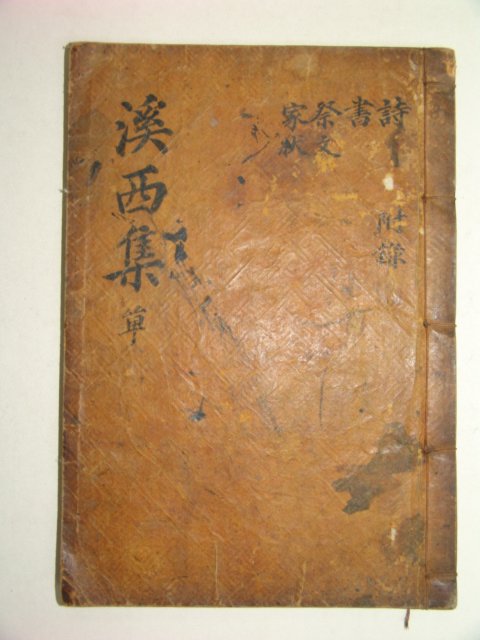 詩
書
祭文
家狀
附錄
溪西集
單